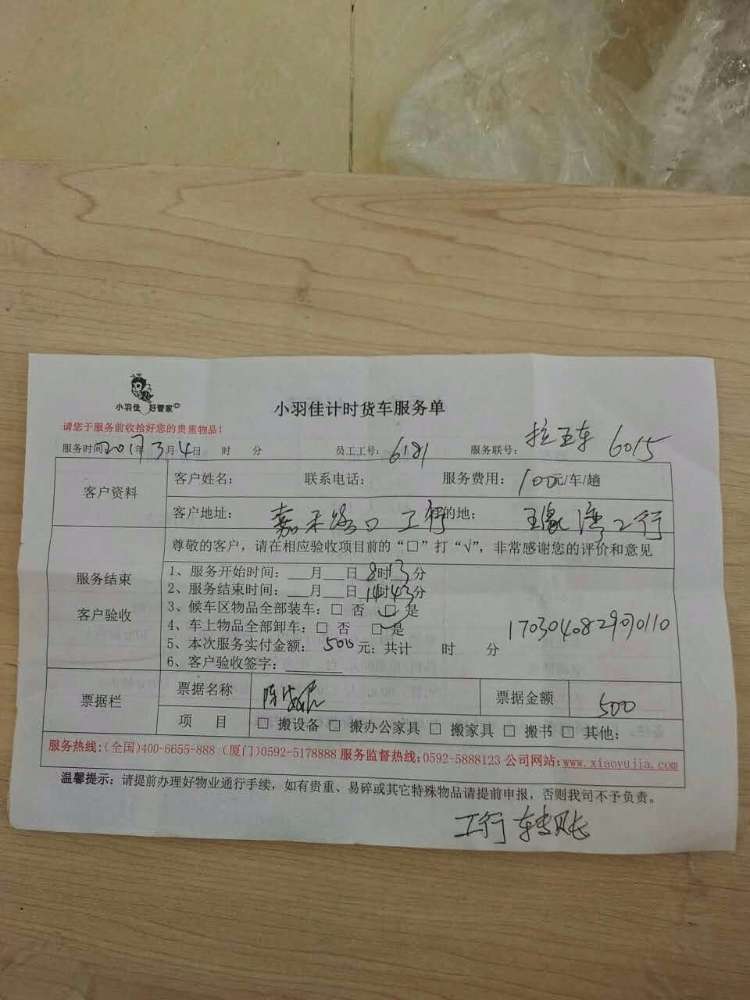 小羽佳 好管家
小羽佳计时货车服务单
请您于服务前收拾好您的贵重物品!
服务时间2017年3月4日 时 分 员工工号: 6181 服务联号: 拉五车 6015
客户资料
客户姓名: 联系电话: 服务费用: 100元/车/趟
客户地址: 嘉禾路口 工行 的地: 工行
服务结束
客户验收
尊敬的客户,请在相应验收项目前的“□”打“√”,非常感谢您的评价和意见
1、服务开始时间: 月 日 8时13分
2、服务结束时间: 月 日 14时43分
3、候车区物品全部装车: □ 否 □ 是
4、车上物品全部卸车: □ 否 □ 是
1703040829070110
5、本次服务实付金额: 500 元: 共计 时 分
6、客户验收签字:
票据栏
票据名称 陈 票据金额 500
项 目 □ 搬设备 □ 搬办公家具 □ 搬家具 □ 搬书 □ 其他:
服务热线:(全国)400-6655-888 (厦门)0592-5178888 服务监督热线:0592-5888123 公司网站:www.xiaoyujia.com
温馨提示: 请提前办理好物业通行手续,如有贵重、易碎或其它特殊物品请提前申报,否则我司不予负责。
工行 转账